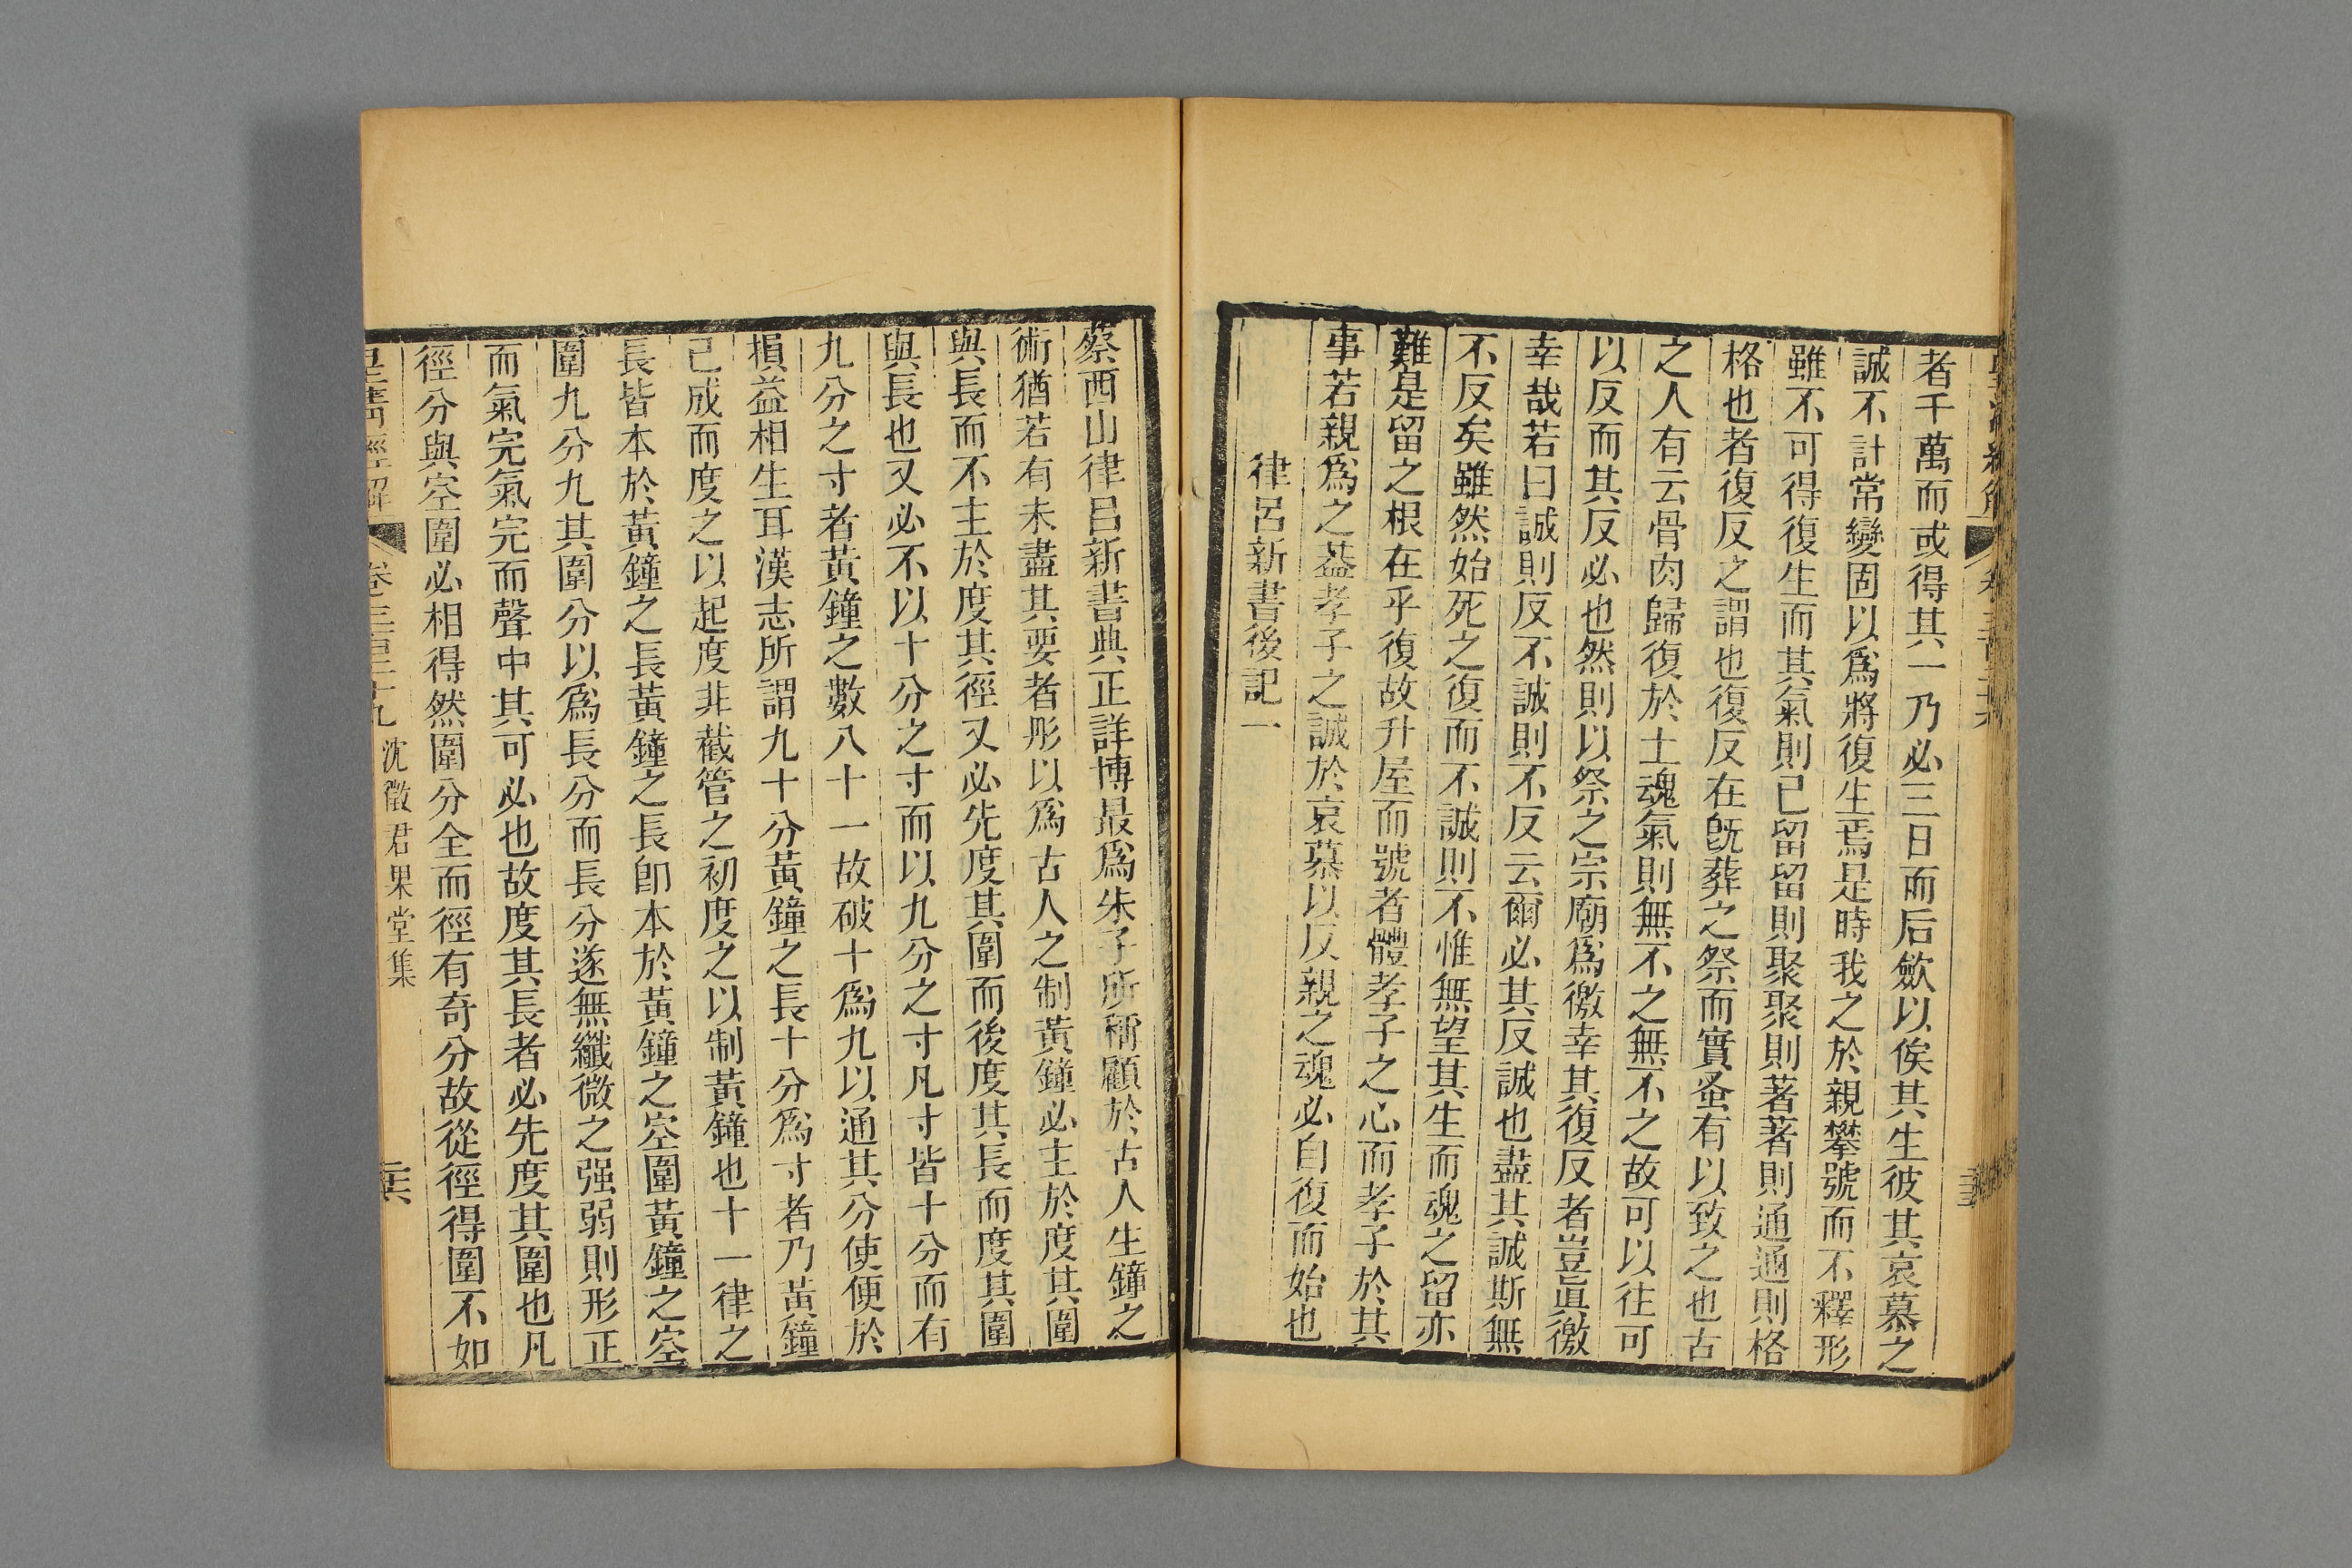 者千萬而或得其一乃必三日而后斂以俟其生彼其哀慕之
誠不計常變固以爲將復生焉是時我之於親攀號而不釋形
雖不可得復生而其氣則已留留則聚聚則著著則通通則格
格也者復反之謂也復反在旣葬之祭而實蚤有以致之也古
之人有云骨肉歸復於土魂氣則無不之無不之故可以往可
以反而其反必也然則以祭之宗廟爲徼幸其復反者豈眞徼
幸哉若曰誠則反不誠則不反云爾必其反誠也盡其誠斯無
不反矣雖然始死之復而不誠則不惟無望其生而魂之留亦
難是留之根在乎復故升屋而號者體孝子之心而孝子於其
事若親爲之葢孝子之誠於哀慕以反親之魂必自復而始也
律呂新書後記一
蔡西山律呂新書典正詳博最爲朱子所稱顧於古人生鐘之
術猶若有未盡其要者彤以爲古人之制黃鐘必主於度其圍
與長而不主於度其徑又必先度其圍而後度其長而度其圍
與長也又必不以十分之寸而以九分之寸凡寸皆十分而有
九分之寸者黃鐘之數八十一故破十爲九以通其分使便於
損益相生耳漢志所謂九十分黃鐘之長十分爲寸者乃黃鐘
已成而度之以起度非截管之初度之以制黃鐘也十一律之
長皆本於黃鐘之長黃鐘之長卽本於黃鐘之空圍黃鐘之空
圍九分九其圍分以爲長分而長分遂無纖微之强弱則形正
而氣完氣完而聲中其可必也故度其長者必先度其圍也凡
徑分與空圍必相得然圍分全而徑有奇分故從徑得圍不如
皇清經解 卷三百二十九 沈徵君果堂集